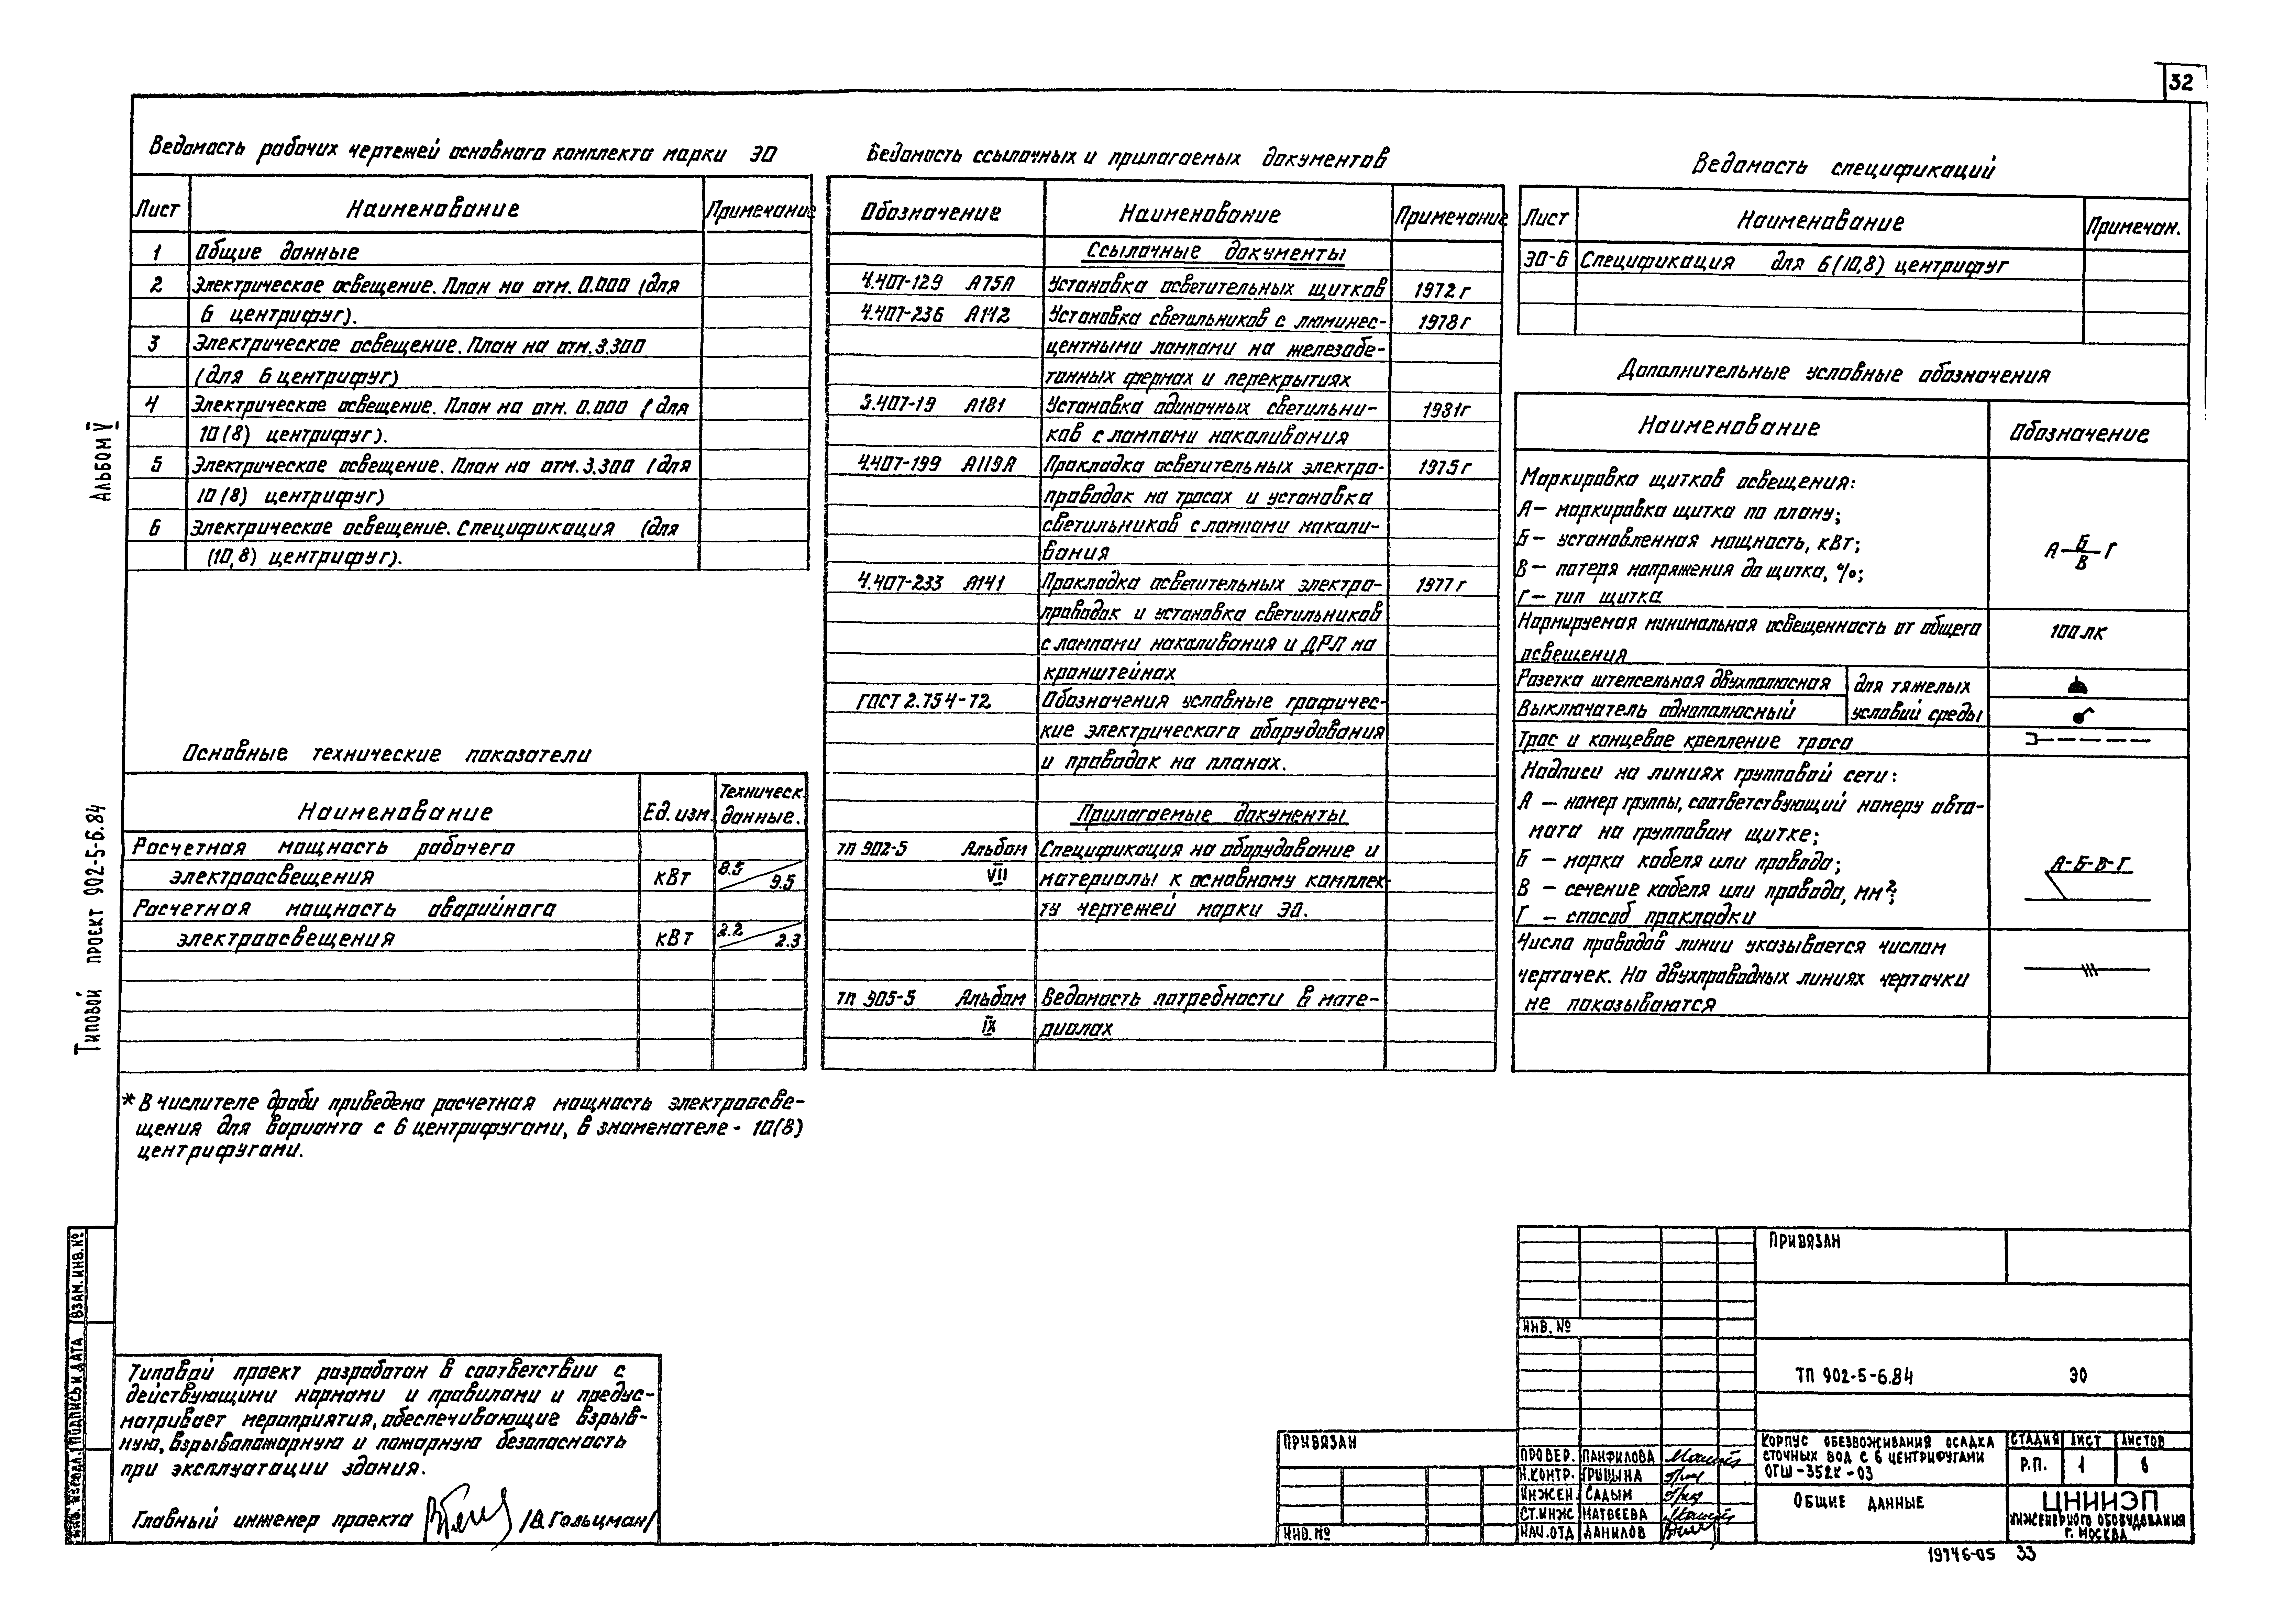 32
Ведомость рабочих чертежей основного комплекта марки ЭО
Лист Наименование Примечание
1 Общие данные
2 Электрическое освещение. План на отм. 0.000 (для
6 центрифуг).
3 Электрическое освещение. План на отм. 3.300
(для 6 центрифуг)
4 Электрическое освещение. План на отм. 0.000 (для
10(8) центрифуг).
5 Электрическое освещение. План на отм. 3.300 (для
10(8) центрифуг)
6 Электрическое освещение. Спецификация (для
(10,8) центрифуг).
Основные технические показатели
Наименование Ед. изм. Техническ. данные.
Расчетная мощность рабочего
электроосвещения кВт 8.5/9.5
Расчетная мощность аварийного
электроосвещения кВт 2.2/2.3
* В числителе дроби приведена расчетная мощность электроосве-
щения для варианта с 6 центрифугами, в знаменателе - 10(8)
центрифугами.
Ведомость ссылочных и прилагаемых документов
Обозначение Наименование Примечание
Ссылочные документы
4.407-129 А75А Установка осветительных щитков 1972 г
4.407-236 А112 Установка светильников с люминес- 1978 г
центными лампами на железобе-
тонных фермах и перекрытиях
5.407-19 А181 Установка одиночных светильни- 1981г
ков с лампами накаливания
4.407-199 А119А Прокладка осветительных электро- 1975 г
проводок на тросах и установка
светильников с лампами накали-
вания
4.407-233 А141 Прокладка осветительных электро- 1977 г
проводок и установка светильников
с лампами накаливания и ДРЛ на
кронштейнах
ГОСТ 2.754-72 Обозначения условные графичес-
кие электрического оборудования
и проводок на планах.
Прилагаемые документы
тп 902-5 Альбом Спецификация на оборудование и
VII материалы к основному комплек-
ту чертежей марки ЭО.
тп 905-5 Альбом Ведомость потребности в мате-
IX риалах
Ведомость спецификаций
Лист Наименование Примечан.
ЭО-6 Спецификация для 6(10,8) центрифуг
Дополнительные условные обозначения
Наименование Обозначение
Маркировка щитков освещения:
А — маркировка щитка по плану;
Б — установленная мощность, кВт;
А Б/В Г
В — потеря напряжения до щитка, %;
Г — тип щитка
Нормируемая минимальная освещенность от общего 100 лк
освещения
Розетка штепсельная двухполюсная для тяжелых
Выключатель однополюсный условий среды
Трос и концевое крепление троса
Надписи на линиях групповой сети:
А — номер группы, соответствующий номеру авто-
мата на групповом щитке;
Б — марка кабеля или провода; А-Б-В-Г
В — сечение кабеля или провода, мм²;
Г — способ прокладки
Число проводов линии указывается числом
черточек. На двухпроводных линиях черточки
не показываются
Альбом V
Типовой проект 902-5-6.84
Взам. инв. №
Подпись и дата
Типовой проект разработан в соответствии с
действующими нормами и правилами и предус-
матривает мероприятия, обеспечивающие взрыв-
ную, взрывопожарную и пожарную безопасность
при эксплуатации здания.
Главный инженер проекта /В. Гольцман/
Привязан
Инв. №
Привязан
Инв. №
ТП 902-5-6.84 ЭО
Провер. Панфилова
Н.контр. Гришина
Инжен. Садым
Ст.инж Матвеева
Нач.отд Данилов
Корпус обезвоживания осадка
сточных вод с 6 центрифугами
ОГШ-352К-03
Стадия Лист Листов
Р.П. 1 6
Общие данные
ЦНИИЭП
инженерного оборудования
г. Москва
19746-05 33